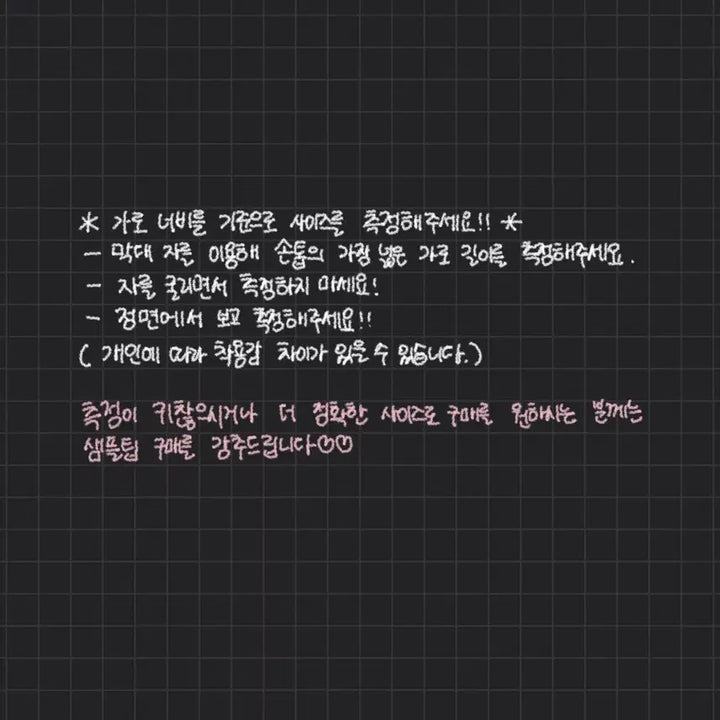 * 가로 너비를 기준으로 사이즈를 측정해주세요!! *
- 막대 자를 이용해 손톱의 가장 넓은 가로 길이를 측정해주세요.
- 자를 굴리면서 측정하지 마세요!
- 정면에서 보고 측정해주세요!!
( 개인에 따라 착용감 차이가 있을 수 있습니다.)
측정이 귀찮으시거나 더 정확한 사이즈로 구매를 원하시는 분께는
샘플팁 구매를 강추드립니다♡♡